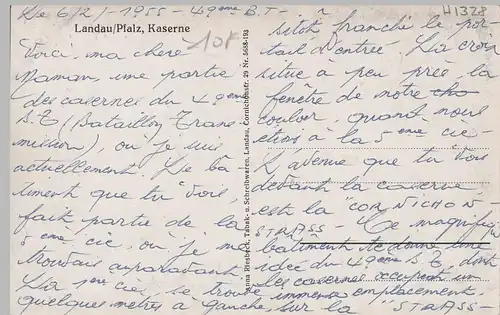 Le 6/2/1955 - 49ème B.T -
Landau/Pfalz, Kaserne
10F
Voici, ma chère
Maman, une partie
des casernes du 49ème
B.T (Bataillon Trans-
mission), où je suis
actuellement. Le ba-
timent que tu vois,
fait partie de la
5ème cie, où je me
trouvais auparavant.
La 1ère cie, se trouve
quelques mètres à gauche, sur la "STRASS-
Anna Riesbeck, Tabak- u. Schreibwaren, Landau, Cornichonstr. 29 Nr. 5688-193
H1328
sitôt franchi le por-
tail d'entrée. La croix
situe à peu près la
fenêtre de notre cha
couloir, quand nous
étions à la 5ème cie-
L'avenue que tu vois
devant la caserne
est la "CORNICHON-
STRASS- Ce magnifique
batiment te donne une
idée du 49ème B.T, dont
les casernes occupent un
immense emplacement